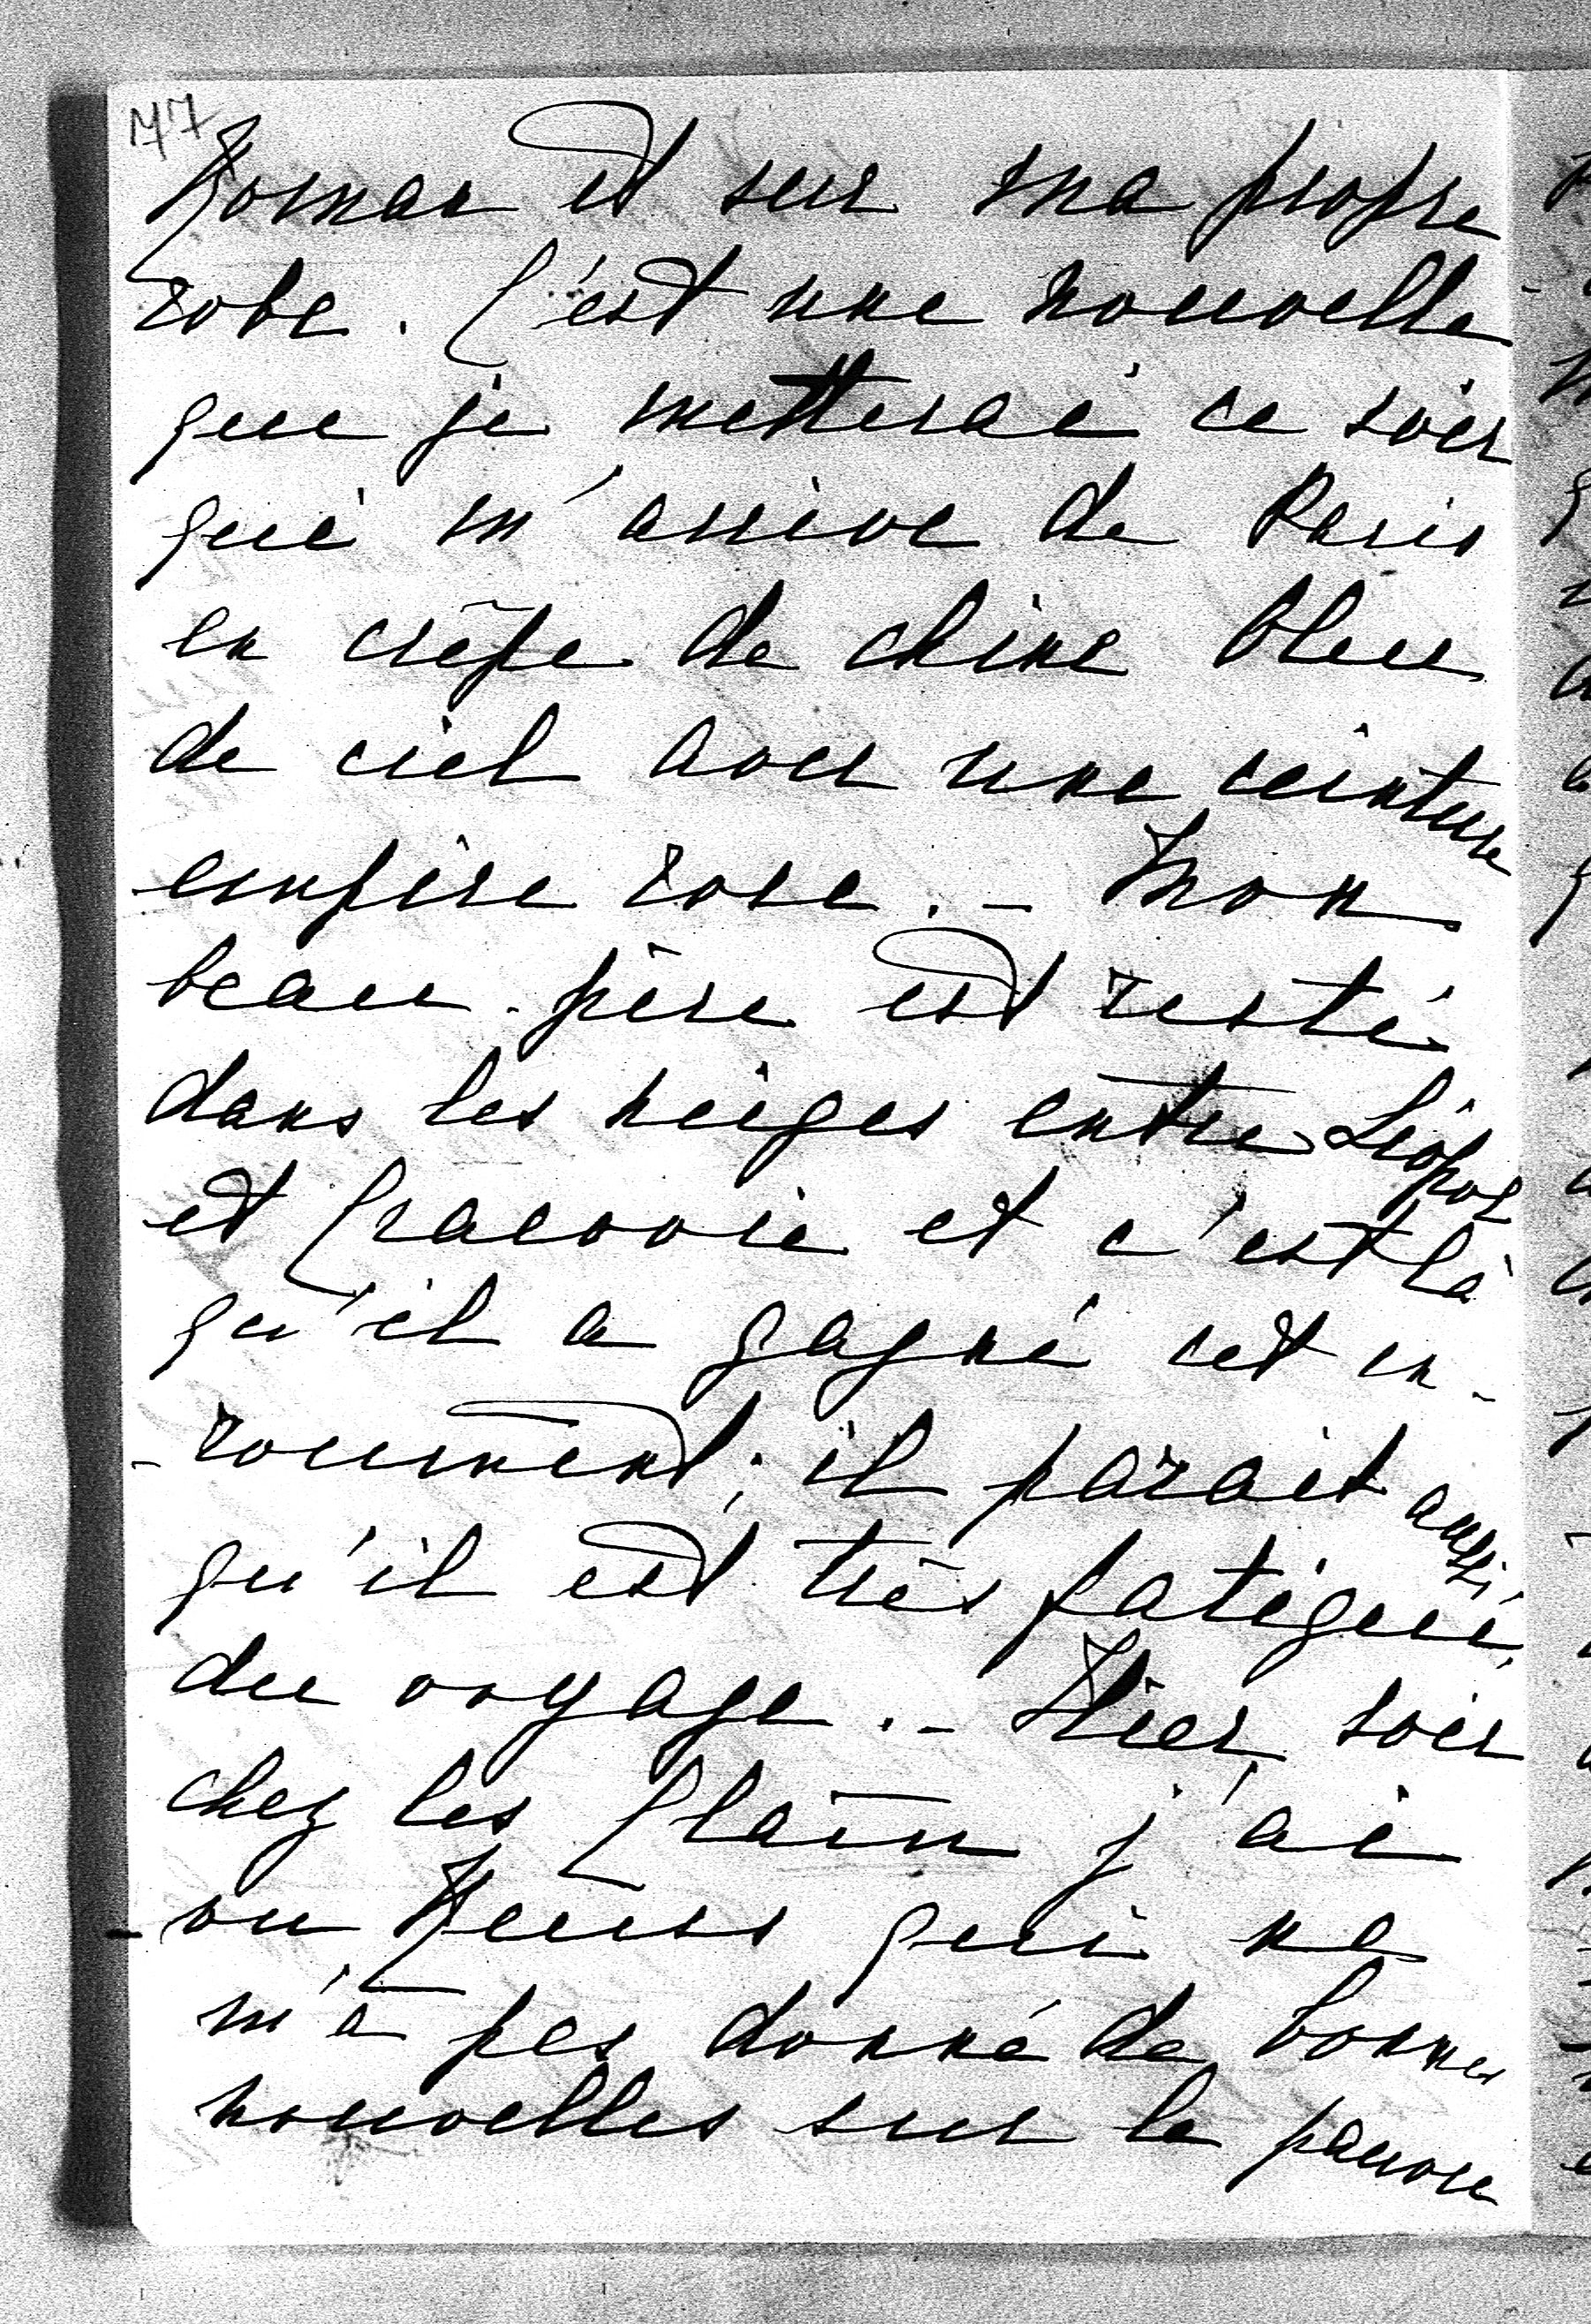 77
Roman et sur ma propre
robe. C'est une nouvelle
que je metterai ce soir
qui m'arrive de Paris
en crêpe de chine bleu
de ciel avec une ceinture
empire rose. - Mon
beau-père est resté
dans les neiges entre Léopol
et Cracovie et c'est là
qu'il a gagné cet en-
-rouement; il parait aussi
qu'il est très fatigué
du voyage. - Hier soir
chez les Clam j'ai
vu Reuss qui ne
m'a pas donné de bonnes
nouvelles sur la pauvre